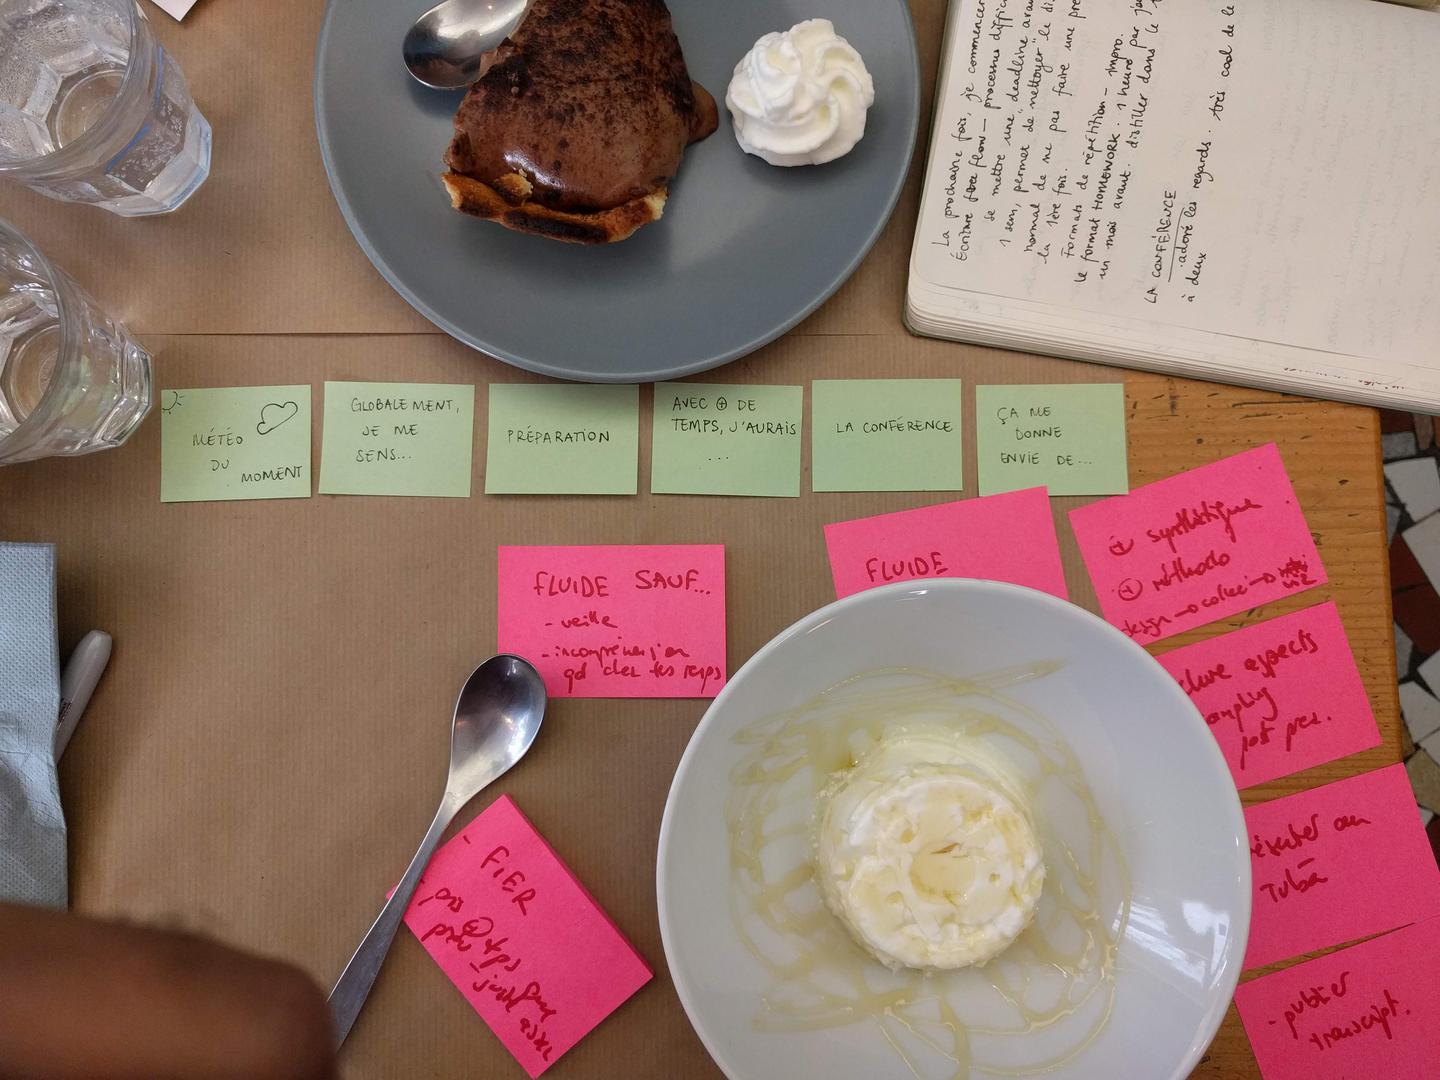 La prochaine fois, je commencer
Écriture free flow — processus diffici
se mettre une "deadline" ava
1 sem, permet de "nettoyer" le di
normal de ne pas faire une pre
la 1ère fois.
Formats de répétition — impro.
le format HOMEWORK. 1 heure par j
un mois avant. distiller dans le
LA CONFÉRENCE
. adoré les regards. très cool de le
à deux
MÉTÉO
DU
MOMENT
GLOBALEMENT,
JE ME
SENS...
PRÉPARATION
AVEC ⊕ DE
TEMPS, J'AURAIS
...
LA CONFÉRENCE
ÇA ME
DONNE
ENVIE DE...
FLUIDE SAUF...
- veille
- incompréhension
qd chez tes reups
FLUIDE
⊕ synthétique
⊕ méthodo
design → collec →
clure aspects
ampling
post prez.
ésenter au
Tubà
- publier
transcript.
- FIER
- pris ⊕ tps
prév
- just